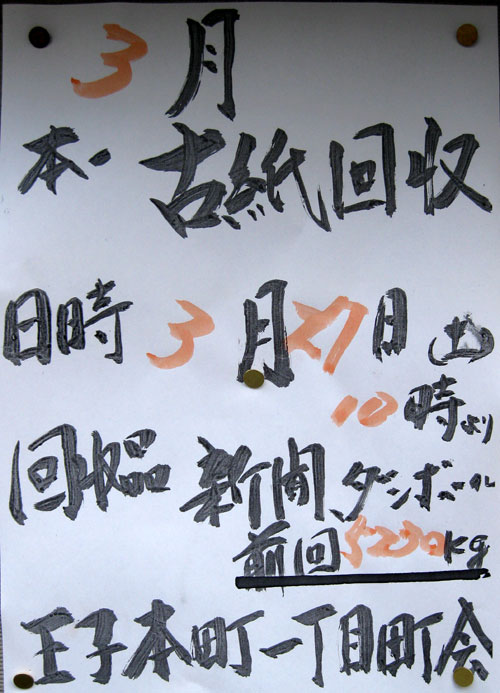 3月
本・古紙回収
日時 3月27日(土)
10時より
回収品 新聞 ダンボール
前回5230kg
王子本町一丁目町会